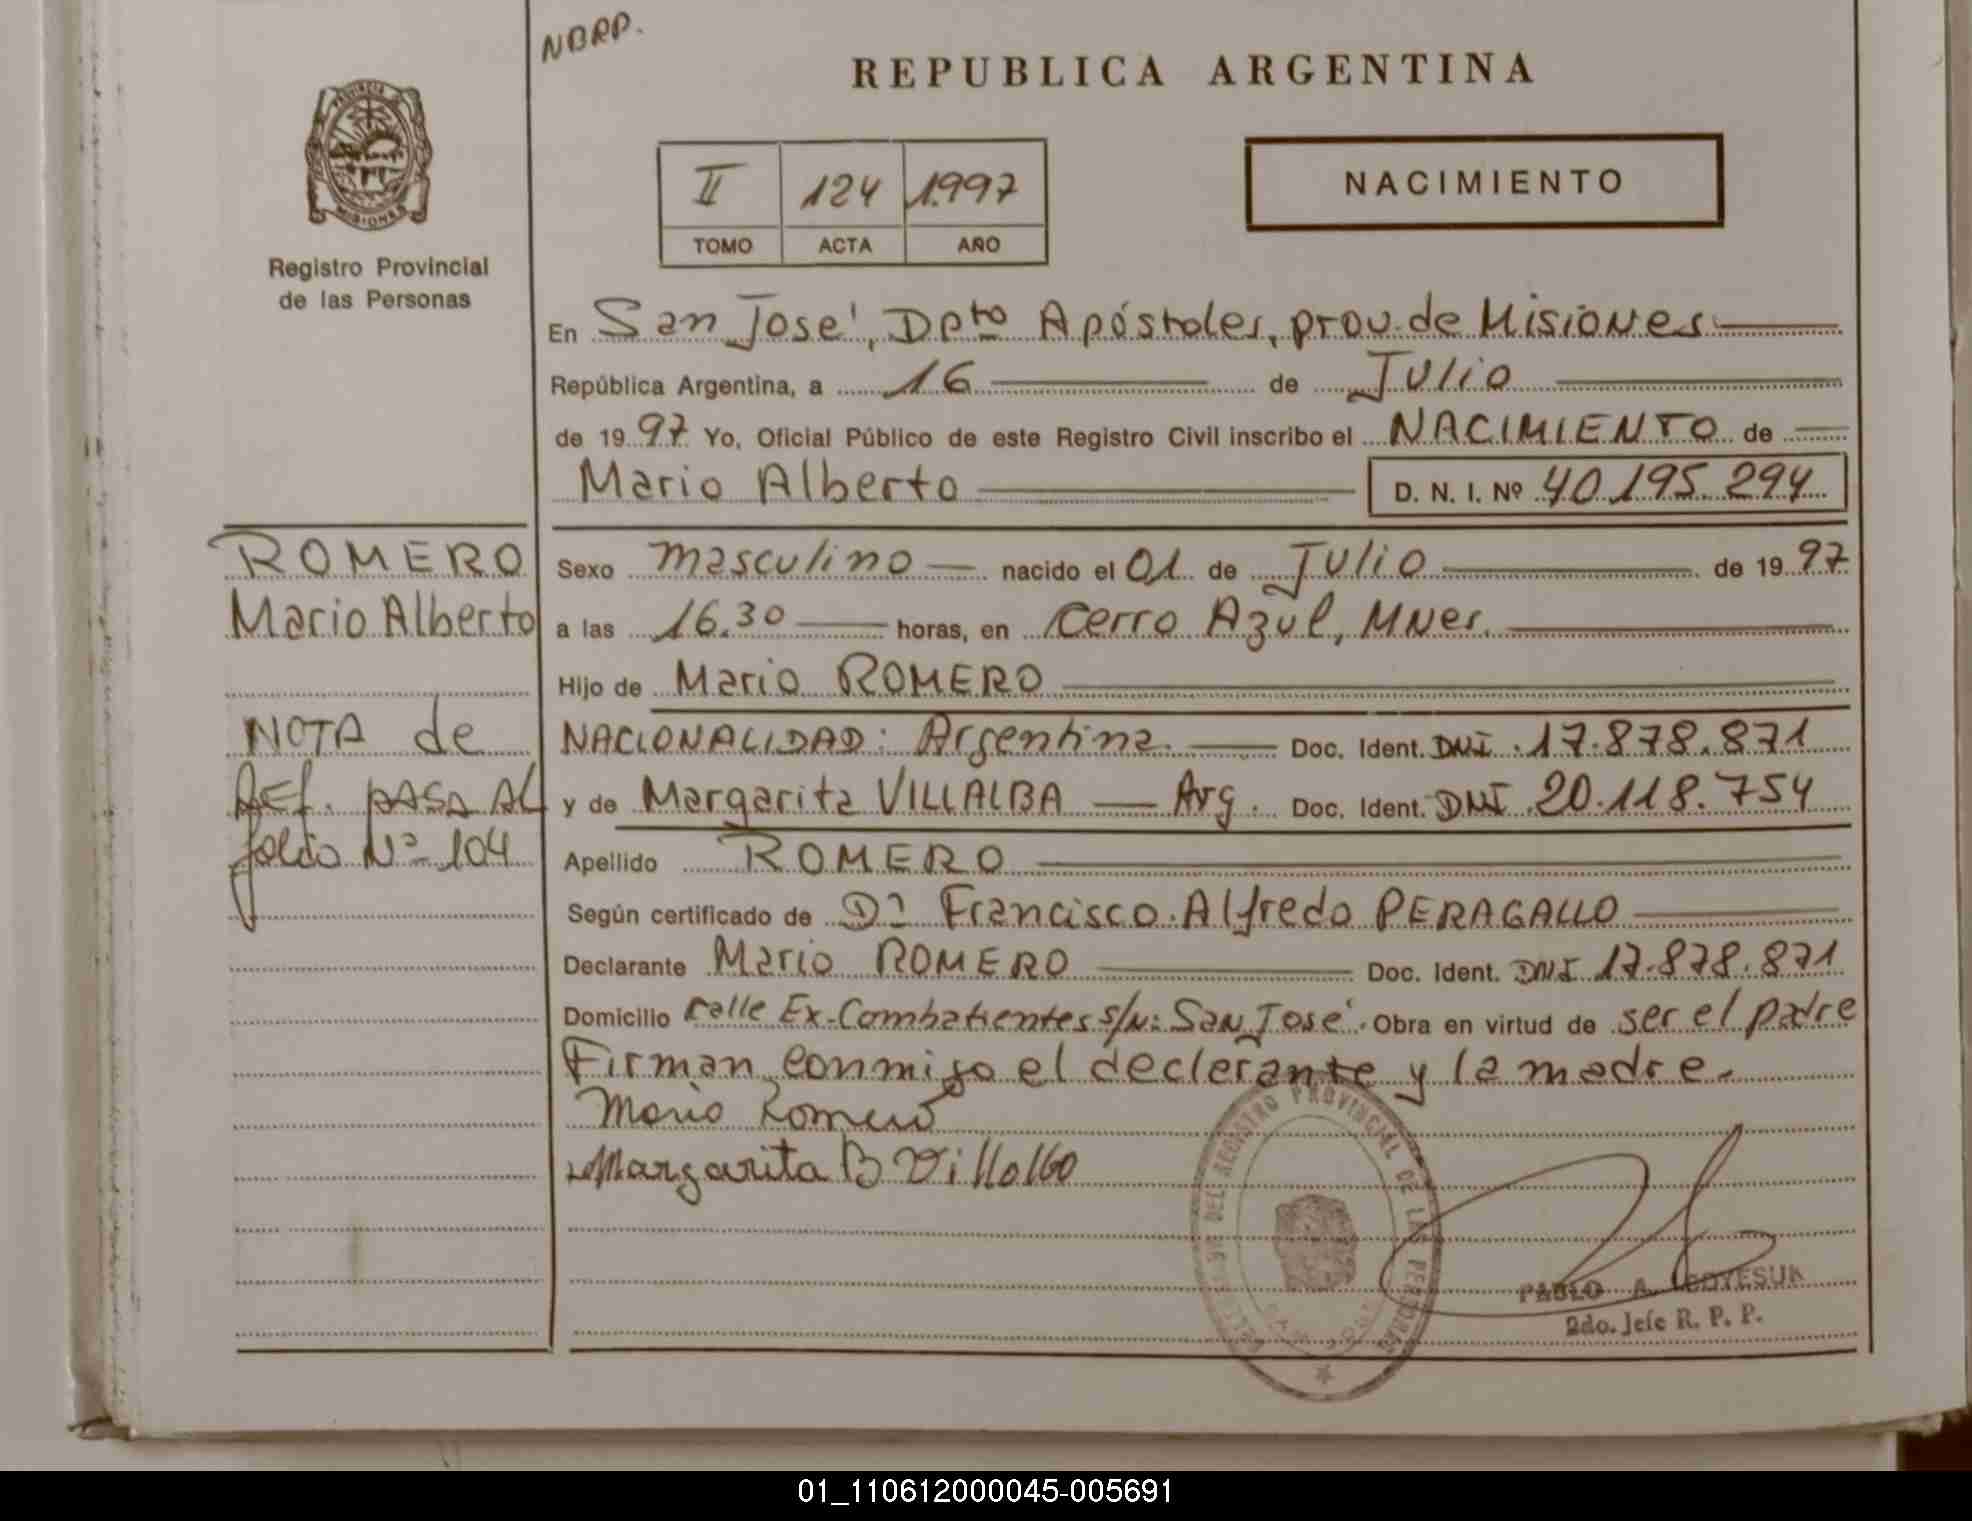 NBRP.
REPUBLICA ARGENTINA
PROVINCIA DE
MISIONES
Registro Provincial
de las Personas
II 124 1.997
TOMO ACTA AÑO
NACIMIENTO
En San José, Dpto Apóstoles, prov. de Misiones
República Argentina, a 16 de Julio
de 1997 Yo, Oficial Público de este Registro Civil inscribo el NACIMIENTO de
Mario Alberto D. N. I. Nº 40.195.294
ROMERO
Mario Alberto
NOTA de
REF. PASA AL
folio Nº 104
Sexo masculino nacido el 01 de Julio de 1997
a las 16.30 horas, en Cerro Azul, MNes.
Hijo de Mario ROMERO
NACIONALIDAD: Argentina. Doc. Ident. DNI 17.878.871
y de Margarita VILLALBA Arg. Doc. Ident. DNI 20.118.754
Apellido ROMERO
Según certificado de Dr Francisco Alfredo PERAGALLO
Declarante Mario ROMERO Doc. Ident. DNI 17.878.871
Domicilio calle Ex-Combatientes s/N: San José. Obra en virtud de ser el padre
Firman conmigo el declarante y la madre.
Mario Romero
Margarita B Villalba
DEL REGISTRO PROVINCIAL DE LAS PERSONAS
PABLO A.
2do. Jefe R. P. P.
01_110612000045-005691